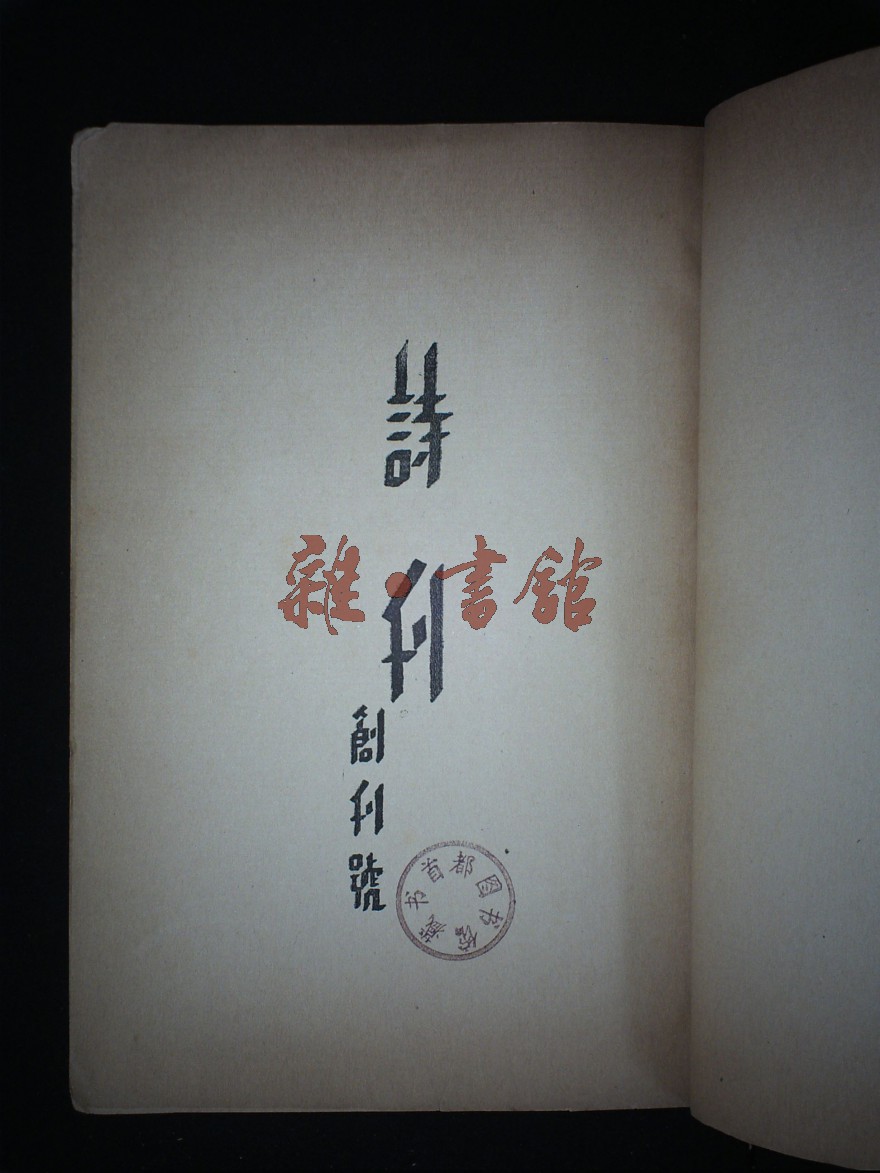 刊
創刊號
雜·書館
首都图书馆藏书